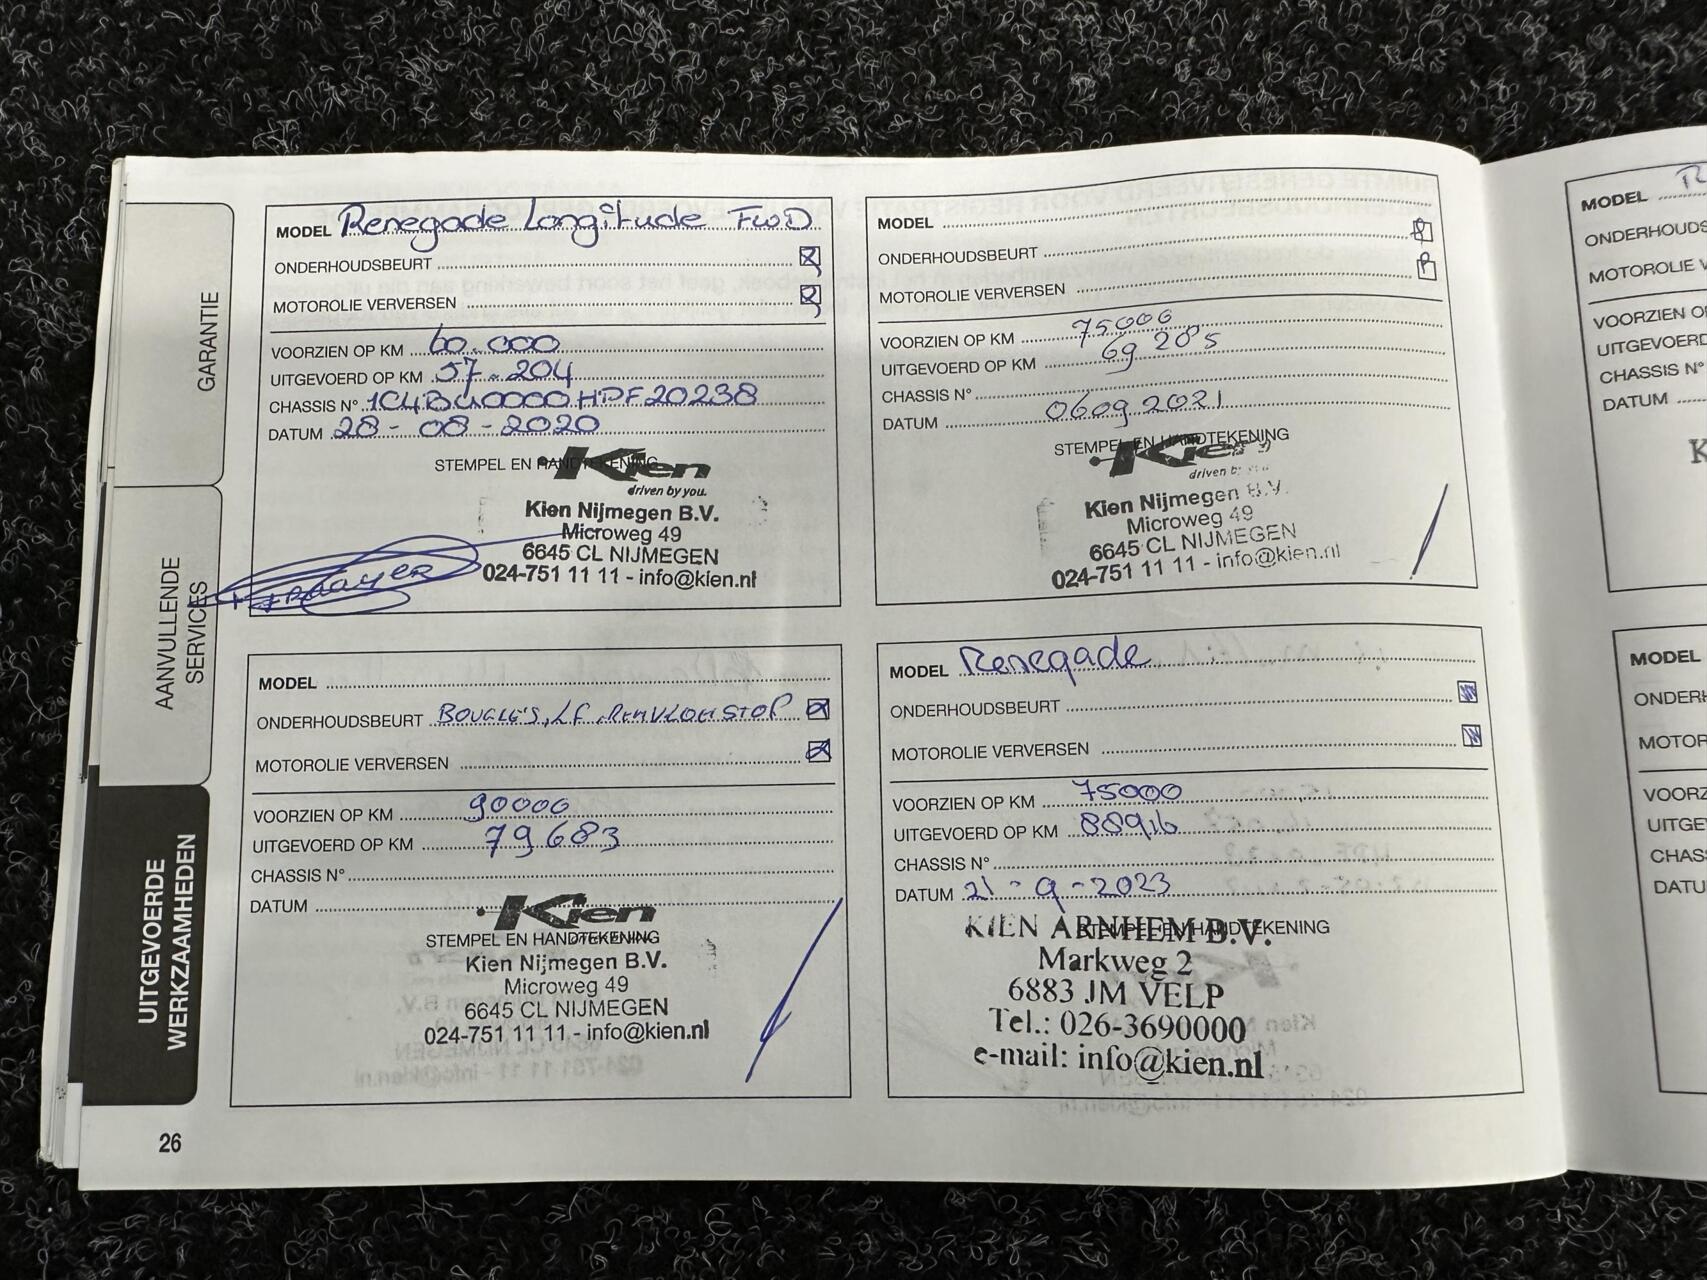 GARANTIE
AANVULLENDE
SERVICES
UITGEVOERDE
WERKZAAMHEDEN
MODEL Renegade Longitude FWD
ONDERHOUDSBEURT
MOTOROLIE VERVERSEN
VOORZIEN OP KM 60.000
UITGEVOERD OP KM 57.204
CHASSIS N° 1C4BU0000HPF20238
DATUM 28-08-2020
STEMPEL EN HANDTEKENING
Kien
driven by you.
Kien Nijmegen B.V.
Microweg 49
6645 CL NIJMEGEN
024-751 11 11 - info@kien.nl
MODEL
ONDERHOUDSBEURT
MOTOROLIE VERVERSEN
VOORZIEN OP KM 75000
UITGEVOERD OP KM 69 205
CHASSIS N°
DATUM 06092021
STEMPEL EN HANDTEKENING
Kien
driven by
Kien Nijmegen B.V.
Microweg 49
6645 CL NIJMEGEN
024-751 11 11 - info@kien.nl
MODEL
ONDERHOUDSBEURT BOUGIE'S, LF, REMVLOEISTOF
MOTOROLIE VERVERSEN
VOORZIEN OP KM 90000
UITGEVOERD OP KM 79683
CHASSIS N°
DATUM
Kien
STEMPEL EN HANDTEKENING
Kien Nijmegen B.V.
Microweg 49
6645 CL NIJMEGEN
024-751 11 11 - info@kien.nl
MODEL Renegade
ONDERHOUDSBEURT
MOTOROLIE VERVERSEN
VOORZIEN OP KM 75000
UITGEVOERD OP KM 88916
CHASSIS N°
DATUM 21-9-2023
STEMPEL EN HANDTEKENING
KIEN ARNHEM B.V.
Markweg 2
6883 JM VELP
Tel.: 026-3690000
e-mail: info@kien.nl
26
MODEL
ONDERHOUDS
MOTOROLIE V
VOORZIEN O
UITGEVOERD
CHASSIS N°
DATUM
K
MODEL
ONDER
MOTOR
VOORZ
UITGE
CHASS
DATU